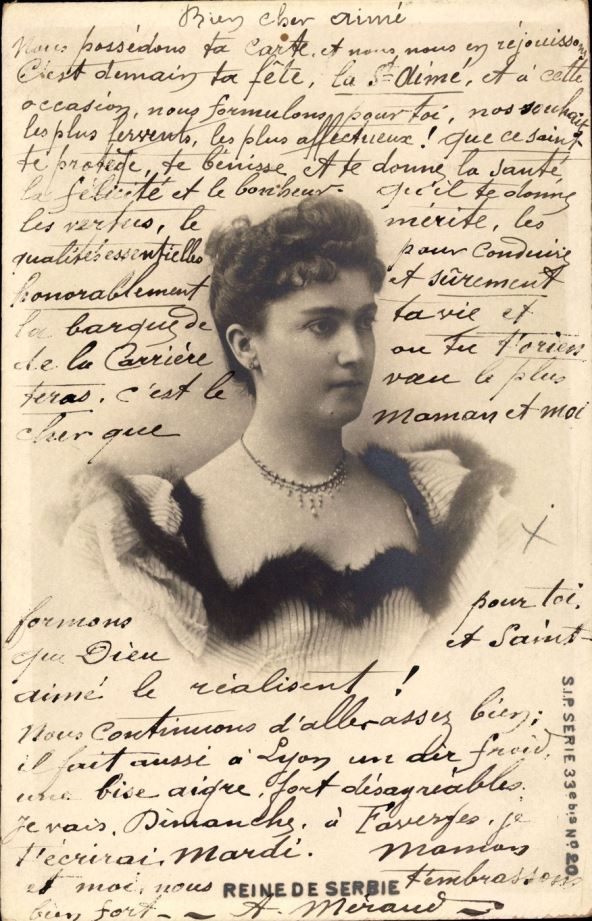 Bien cher aimé
Nous possédons ta carte, et nous nous en réjouissons
C'est demain ta fête, la St Aimé, et à cette
occasion, nous formulons pour toi, nos souhaits
les plus fervents, les plus affectueux! Que ce saint
te protège, te bénisse, et te donne la santé
la félicité et le bonheur. qu'il te donne
les vertus, le mérite, les
qualités essentielles pour conduire
honorablement et sûrement
la barque de ta vie et
de la Carrière ou tu t'orien
teras. C'est le vœu le plus
cher que Maman et moi
formons pour toi.
que Dieu et Saint-
aimé le réalisent!
Nous continuons d'aller assez bien;
il fait aussi à Lyon un air froid,
une bise aigre, fort désagréables.
Je vais, Dimanche, à Faverges, je
t'écrirai, Mardi. Maman
et moi, nous t'embrassons
bien fort - A Meraud
REINE DE SERBIE
S.I.P. SERIE 33e bis No 20